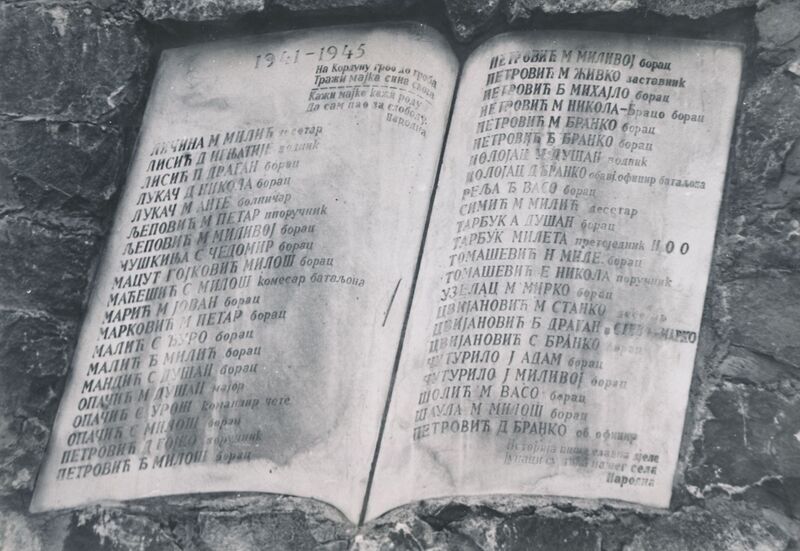 1941-1945
На Кордуну гроб до гроба
Тражи мајка сина свога
Кажи мајке кажи роду
Да сам пао за слободу.
Народна
ЛИЧИНА М МИЛИЋ десетар
ЛИСИЋ Д ИГЊАТИЈЕ водник
ЛИСИЋ П ДРАГАН борац
ЛУКАЧ Д НИКОЛА борац
ЛУКАЧ М АНТЕ болничар
ЉЕПОВИЋ М ПЕТАР ппоручник
ЉЕПОВИЋ М МИЛИВОЈ борац
ЧУШКИЊА С ЧЕДОМИР борац
МАЦУТ ГОЈКОВИЋ МИЛОШ борац
МАЋЕШИЋ С МИЛОШ комесар батаљона
МАРИЋ М ЈОВАН борац
МАРКОВИЋ М ПЕТАР борац
МАЛИЋ С ЂУРО борац
МАЛИЋ Ђ МИЛИЋ борац
МАНДИЋ С ДУШАН борац
ОПАЧИЋ М ДУШАН мајор
ОПАЧИЋ С УРОШ командир чете
ОПАЧИЋ С МИЛОШ борац
ПЕТРОВИЋ Д ГОЈКО поручник
ПЕТРОВИЋ Ђ МИЛОШ борац
ПЕТРОВИЋ М МИЛИВОЈ борац
ПЕТРОВИЋ М ЖИВКО заставник
ПЕТРОВИЋ Б МИХАЈЛО борац
ПЕТРОВИЋ М НИКОЛА-Брацо борац
ПЕТРОВИЋ М БРАНКО борац
ПЕТРОВИЋ Ђ БРАНКО борац
ПОЛОЈАН М ДУШАН водник
ПОЛОЈАН Д БРАНКО обавј.официр батаљона
РЕЉА Ђ ВАСО борац
СИМИЋ М МИЛИЋ десетар
ТАРБУК А ДУШАН борац
ТАРБУК МИЛЕТА претсједник Н О О
ТОМАШЕВИЋ Н МИЛЕ борац
ТОМАШЕВИЋ Е НИКОЛА поручник
УЗЕЛАЦ М МИРКО борац
ЦВИЈАНОВИЋ М СТАНКО десетар
ЦВИЈАНОВИЋ Б ДРАГАН
ЦВИЈАНОВИЋ С БРАНКО борац
ЧУТУРИЛО Ј АДАМ борац
ЧУТУРИЛО Ј МИЛИВОЈ борац
ШОЛИЋ М ВАСО борац
ШАУЛА М МИЛОШ борац
ПЕТРОВИЋ Д БРАНКО об. официр
Историја пише славна дјеле
Јунаци су из нашег села
Народна